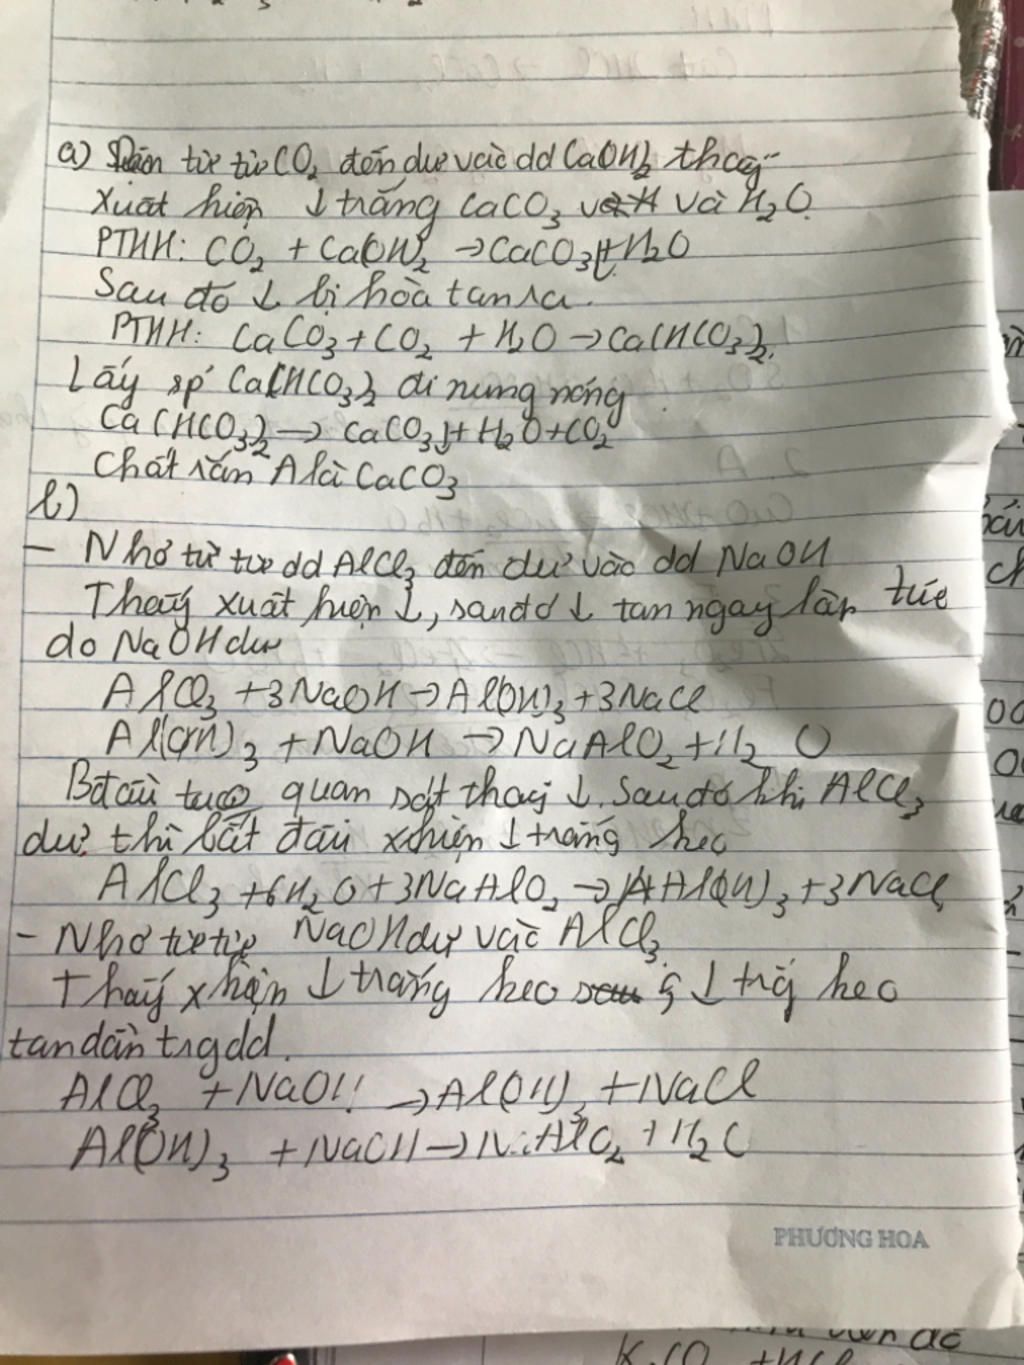 a) Dẫn từ từ CO2 đến dư vào dd Ca(OH)2 thấy
xuất hiện ↓ trắng CaCO3 và H2O.
PTHH: CO2 + Ca(OH)2 → CaCO3↓ + H2O
Sau đó ↓ bị hòa tan ra.
PTHH: CaCO3 + CO2 + H2O → Ca(HCO3)2.
Lấy sp' Ca(HCO3)2 đi nung nóng
Ca(HCO3)2 → CaCO3↓ + H2O + CO2
Chất rắn A là CaCO3
b)
- Nhỏ từ từ dd AlCl3 đến dư vào dd NaOH
Thấy xuất hiện ↓, sau đó ↓ tan ngay lập tức
do NaOH dư
AlCl3 + 3NaOH → Al(OH)3 + 3NaCl
Al(OH)3 + NaOH → NaAlO2 + H2O
quan sát thấy ↓. Sau đó khi AlCl3
dư thì bắt đầu xhiện ↓ trắng keo
AlCl3 + 6H2O + 3NaAlO2 → 4Al(OH)3 + 3NaCl
- Nhỏ từ từ NaOH dư vào AlCl3.
Thấy xhiện ↓ trắng keo ↓ trắng keo
tan dần trg dd.
AlCl3 + NaOH → Al(OH)3 + NaCl
Al(OH)3 + NaOH → NaAlO2 + H2O
PHƯƠNG HOA